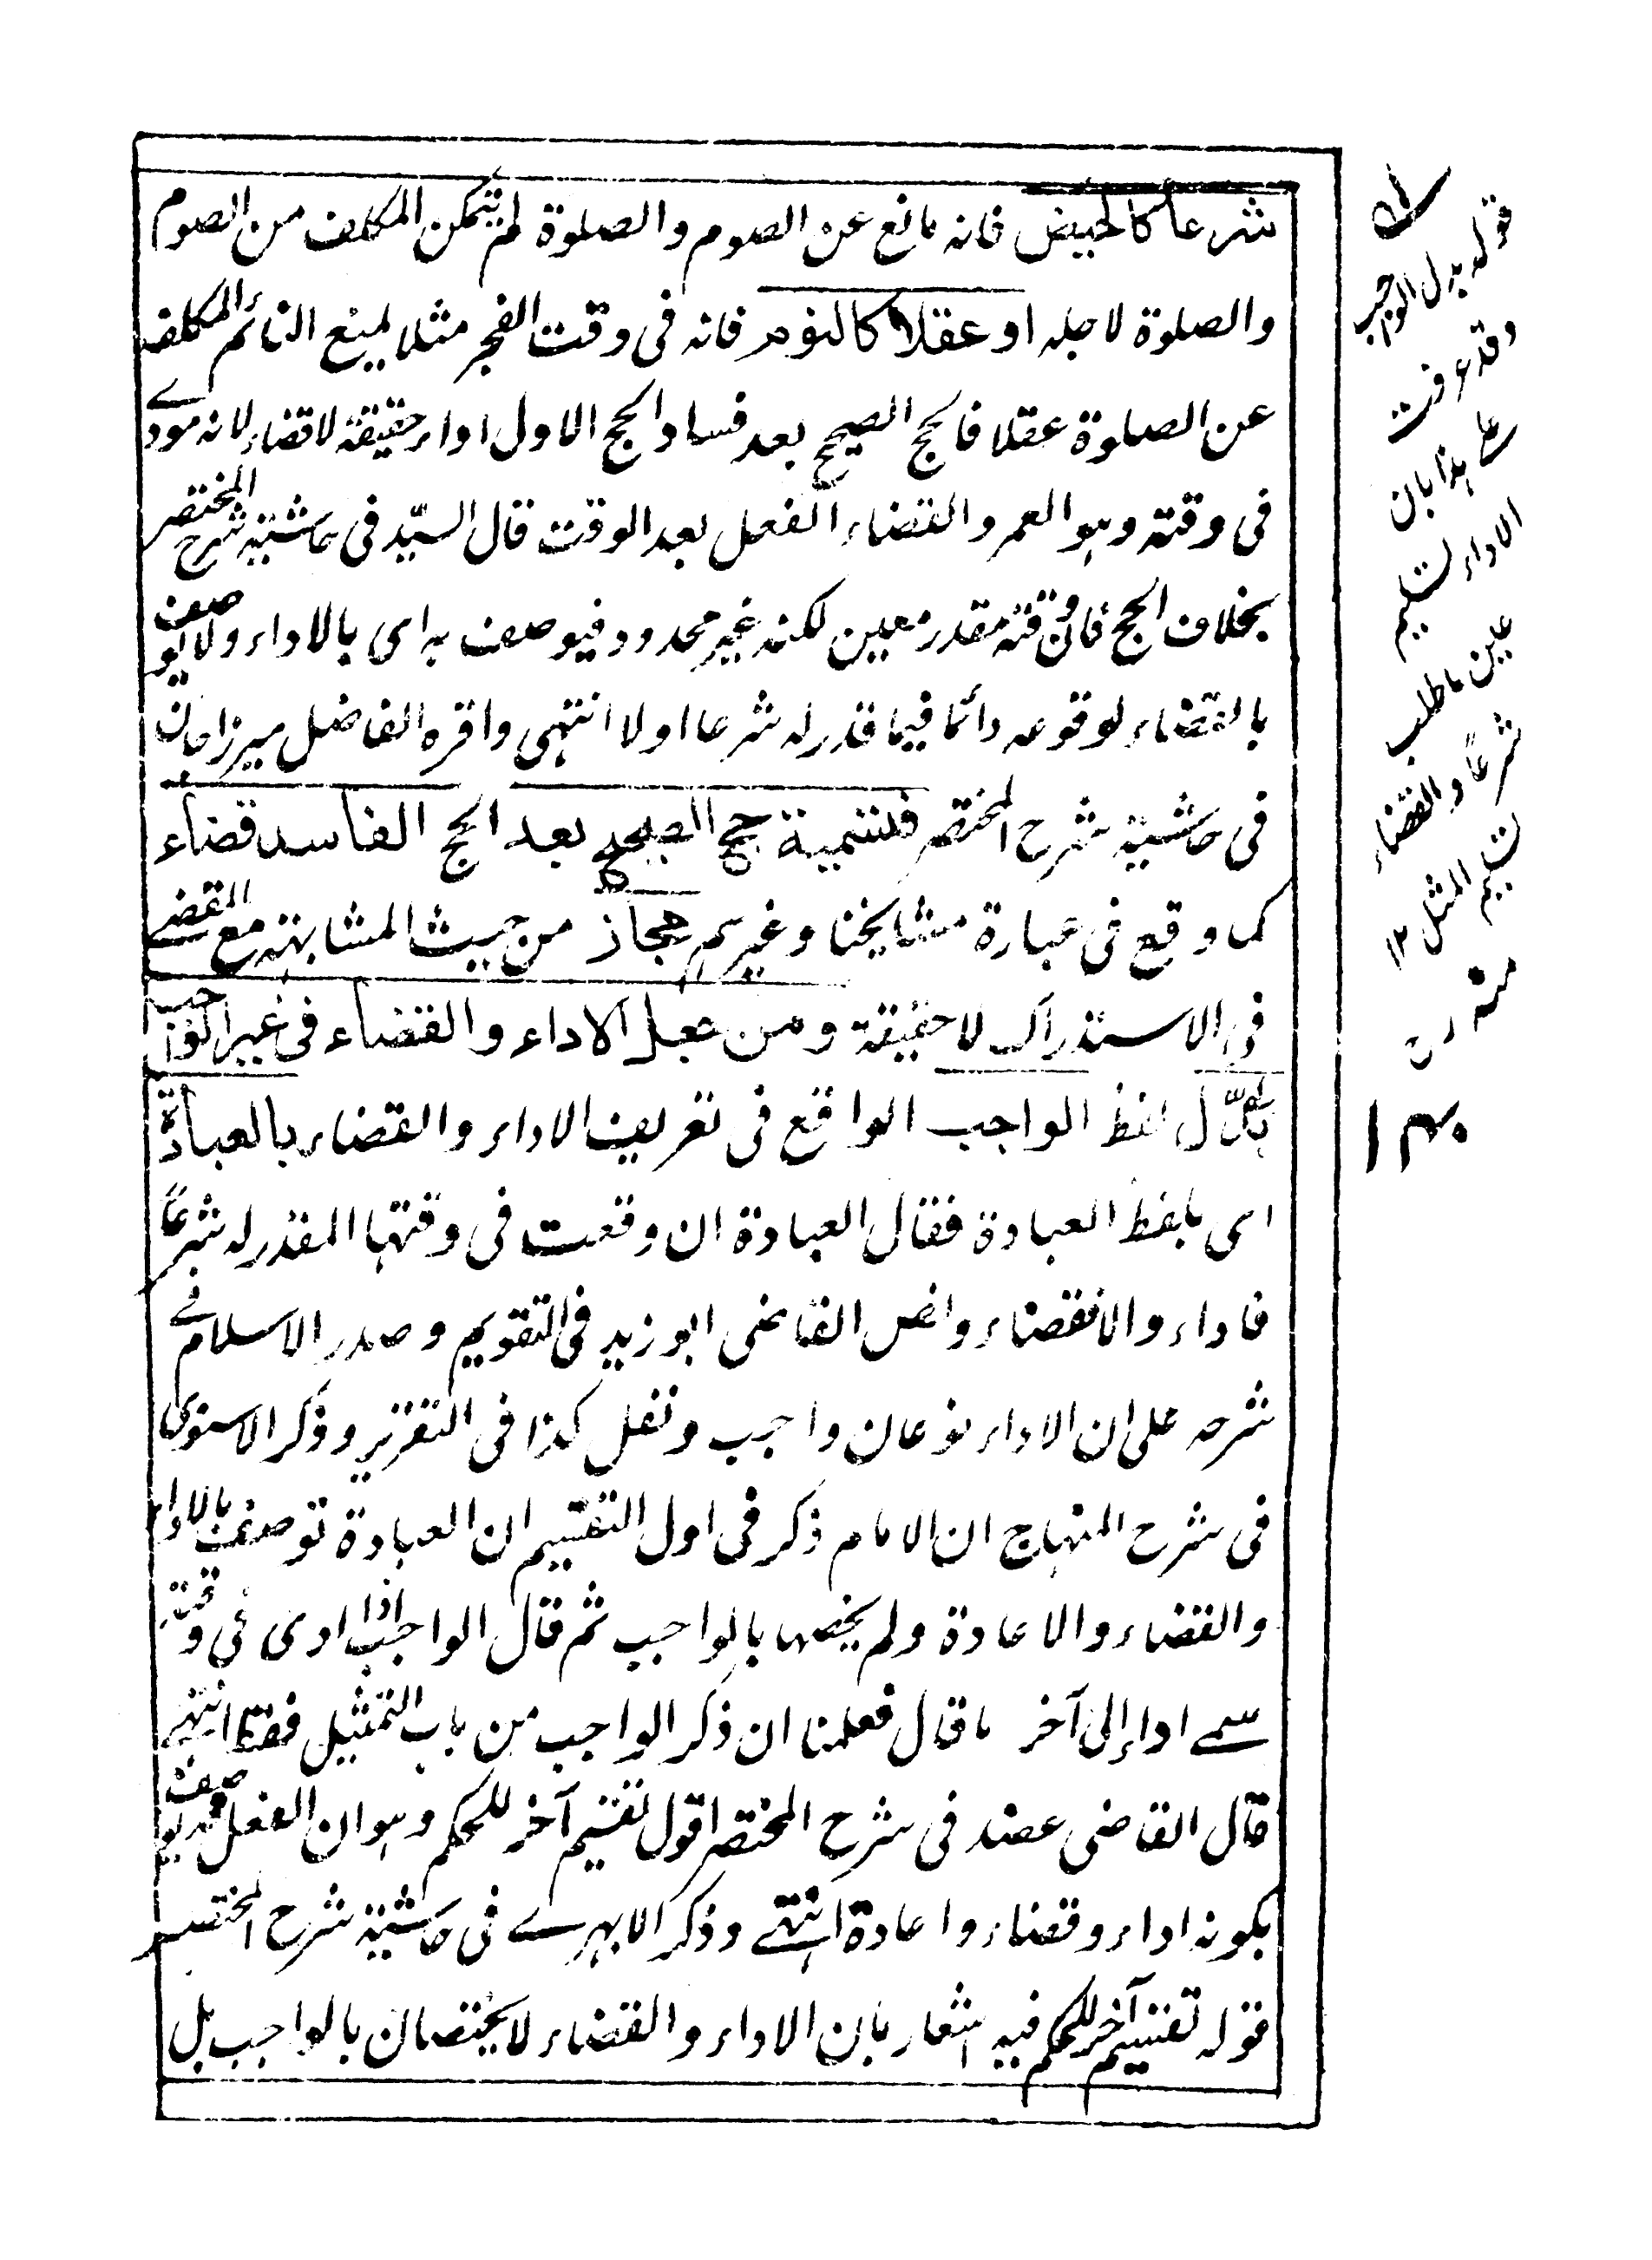 شرعا كالحيض فانه مانع عن الصوم والصلوة لم يتمكن المكلف من الصوم
والصلوة لاجله او عقلا كالنوم فانه فى وقت الفجر مثلا يمنع النائم المكلف
عن الصلوة عقلا فالحج الصحيح بعد فساد الحج الاول اداء حقيقة لا قضاء لانه مودى
فى وقته وهو العمر والقضاء الفعل بعد الوقت قال السيّد فى حاشية شرح المختصر
بخلاف الحج فان وقته مقدر معين لكنه غير محدود فيوصف به اى بالاداء ولا يوصف
بالقضاء لوقوعه دائما فيما قدر له شرعا اولا انتهى واقره الفاضل ميرزاجان
فى حاشية شرح المختصر فتسمية حج الصحيح بعد الحج الفاسد قضاء
كما وقع فى عبارة مشايخنا وغيرهم مجاز من حيث المشابهة مع المقضى
فى الاستدراك لا حقيقة ومن جعل الاداء والقضاء فى غير الواجب
بدّل لفظ الواجب الواقع فى تعريف الاداء والقضاء بالعبادة
اى بلفظ العبادة فقال العبادة ان وقعت فى وقتها المقدر له شرعًا
فاداء والا فقضاء ونص القاضى ابو زيد فى التقويم وصدر الاسلام فى
شرحه على ان الاداء نوعان واجب ونفل كذا فى التقرير وذكر الاسنوى
فى شرح المنهاج ان الامام ذكر فى اول التقسيم ان العبادة توصف بالاداء
والقضاء والاعادة ولم يخصها بالواجب ثم قال الواجب اذا ادى فى وقته
سمى اداء إلى آخر ما قال فعلمنا ان ذكر الواجب من باب التمثيل فقط انتهى
قال القاضى عضد فى شرح المختصر اقول تقسيم آخر للحكم وهو ان الفعل قد يوصف
بكونه اداء وقضاء واعادة انتهى وذكر الابهرى فى حاشية شرح المختصر
قوله تقسيم آخر للحكم فيه اشعار بان الاداء والقضاء لا يختصان بالواجب بل
قوله بدل الواجب
وقد عرفت
على هذا بان
الاداء تسليم
عين ما طلب
شرعًا والقضاء
تسليم المثل ١٢
منه